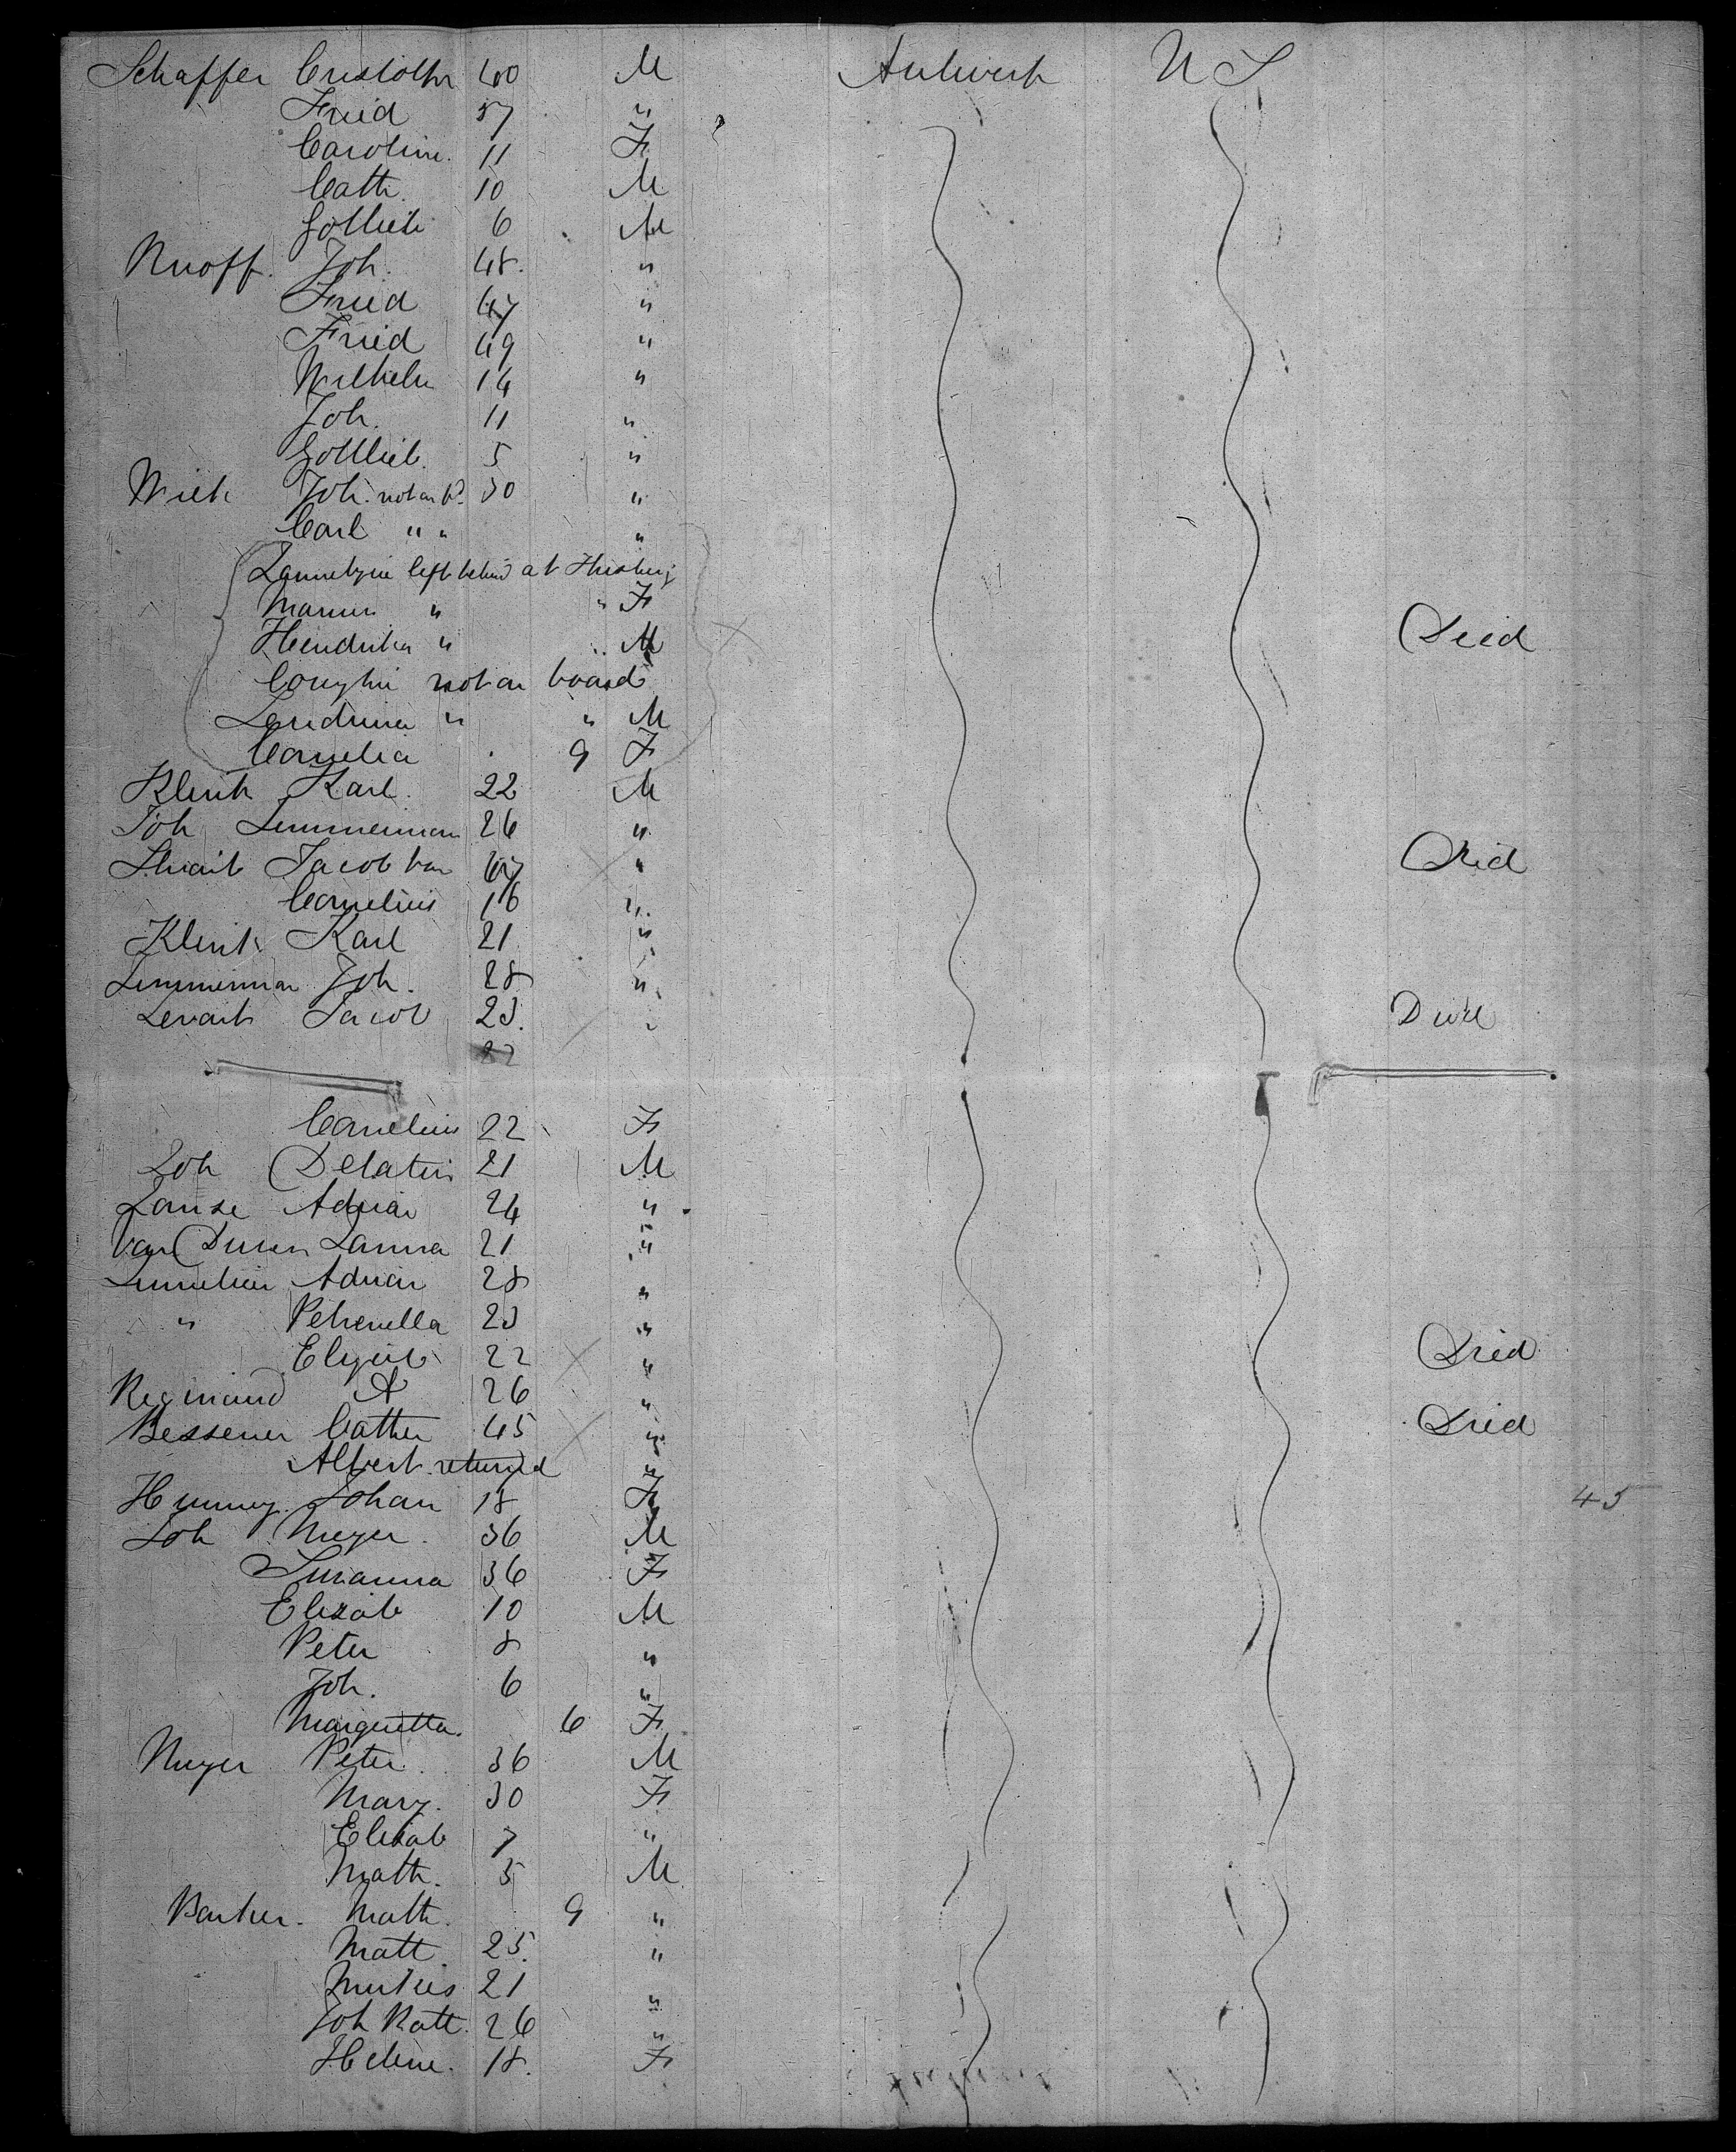 Schaffer Cristother 40 M Antwerp U S
Fried 37 "
Caroline. 11 F
Cath. 10 M
Gottlieb 6 M
Knoff. Joh. 48. "
Fried 47 "
Fried 49 "
Wilhelm 14 "
Joh. 11 "
Gottlieb. 5 "
Wick Joh. not on bd. 30 "
Carl " " "
left behind at
" " F
Hendrika " " M Died
not on board
" " M
Cornelia 9 F
Klenk Karl. 22 M
Joh Zimmerman 26 "
Jacob van 47 " Died
Cornelius 16 "
Klenk Karl 21 "
Zimmerman Joh. 28 "
Jacob 23. " Died
22
Cornelius 22 F
Joh Delatin 21 M
Adrian 24 "
Van Duren 21 "
Adrian 28 "
" Petronella 23 "
22 " Died
A 26 "
Bessener Cather 45 " Died
Albert returned "
Johan 18 F 45
Joh Meyer. 36 M
Susanna 36 F
Elizab 10 M
Peter 8 "
Joh. 6 "
Margretta. 6 F
Meyer Peter. 36 M
Mary. 30 F
Elizab 7 "
Math. 5 M
Barker. Math. 9 "
Matt. 25. "
21 "
Joh Matt. 26 "
Helene. 18. F